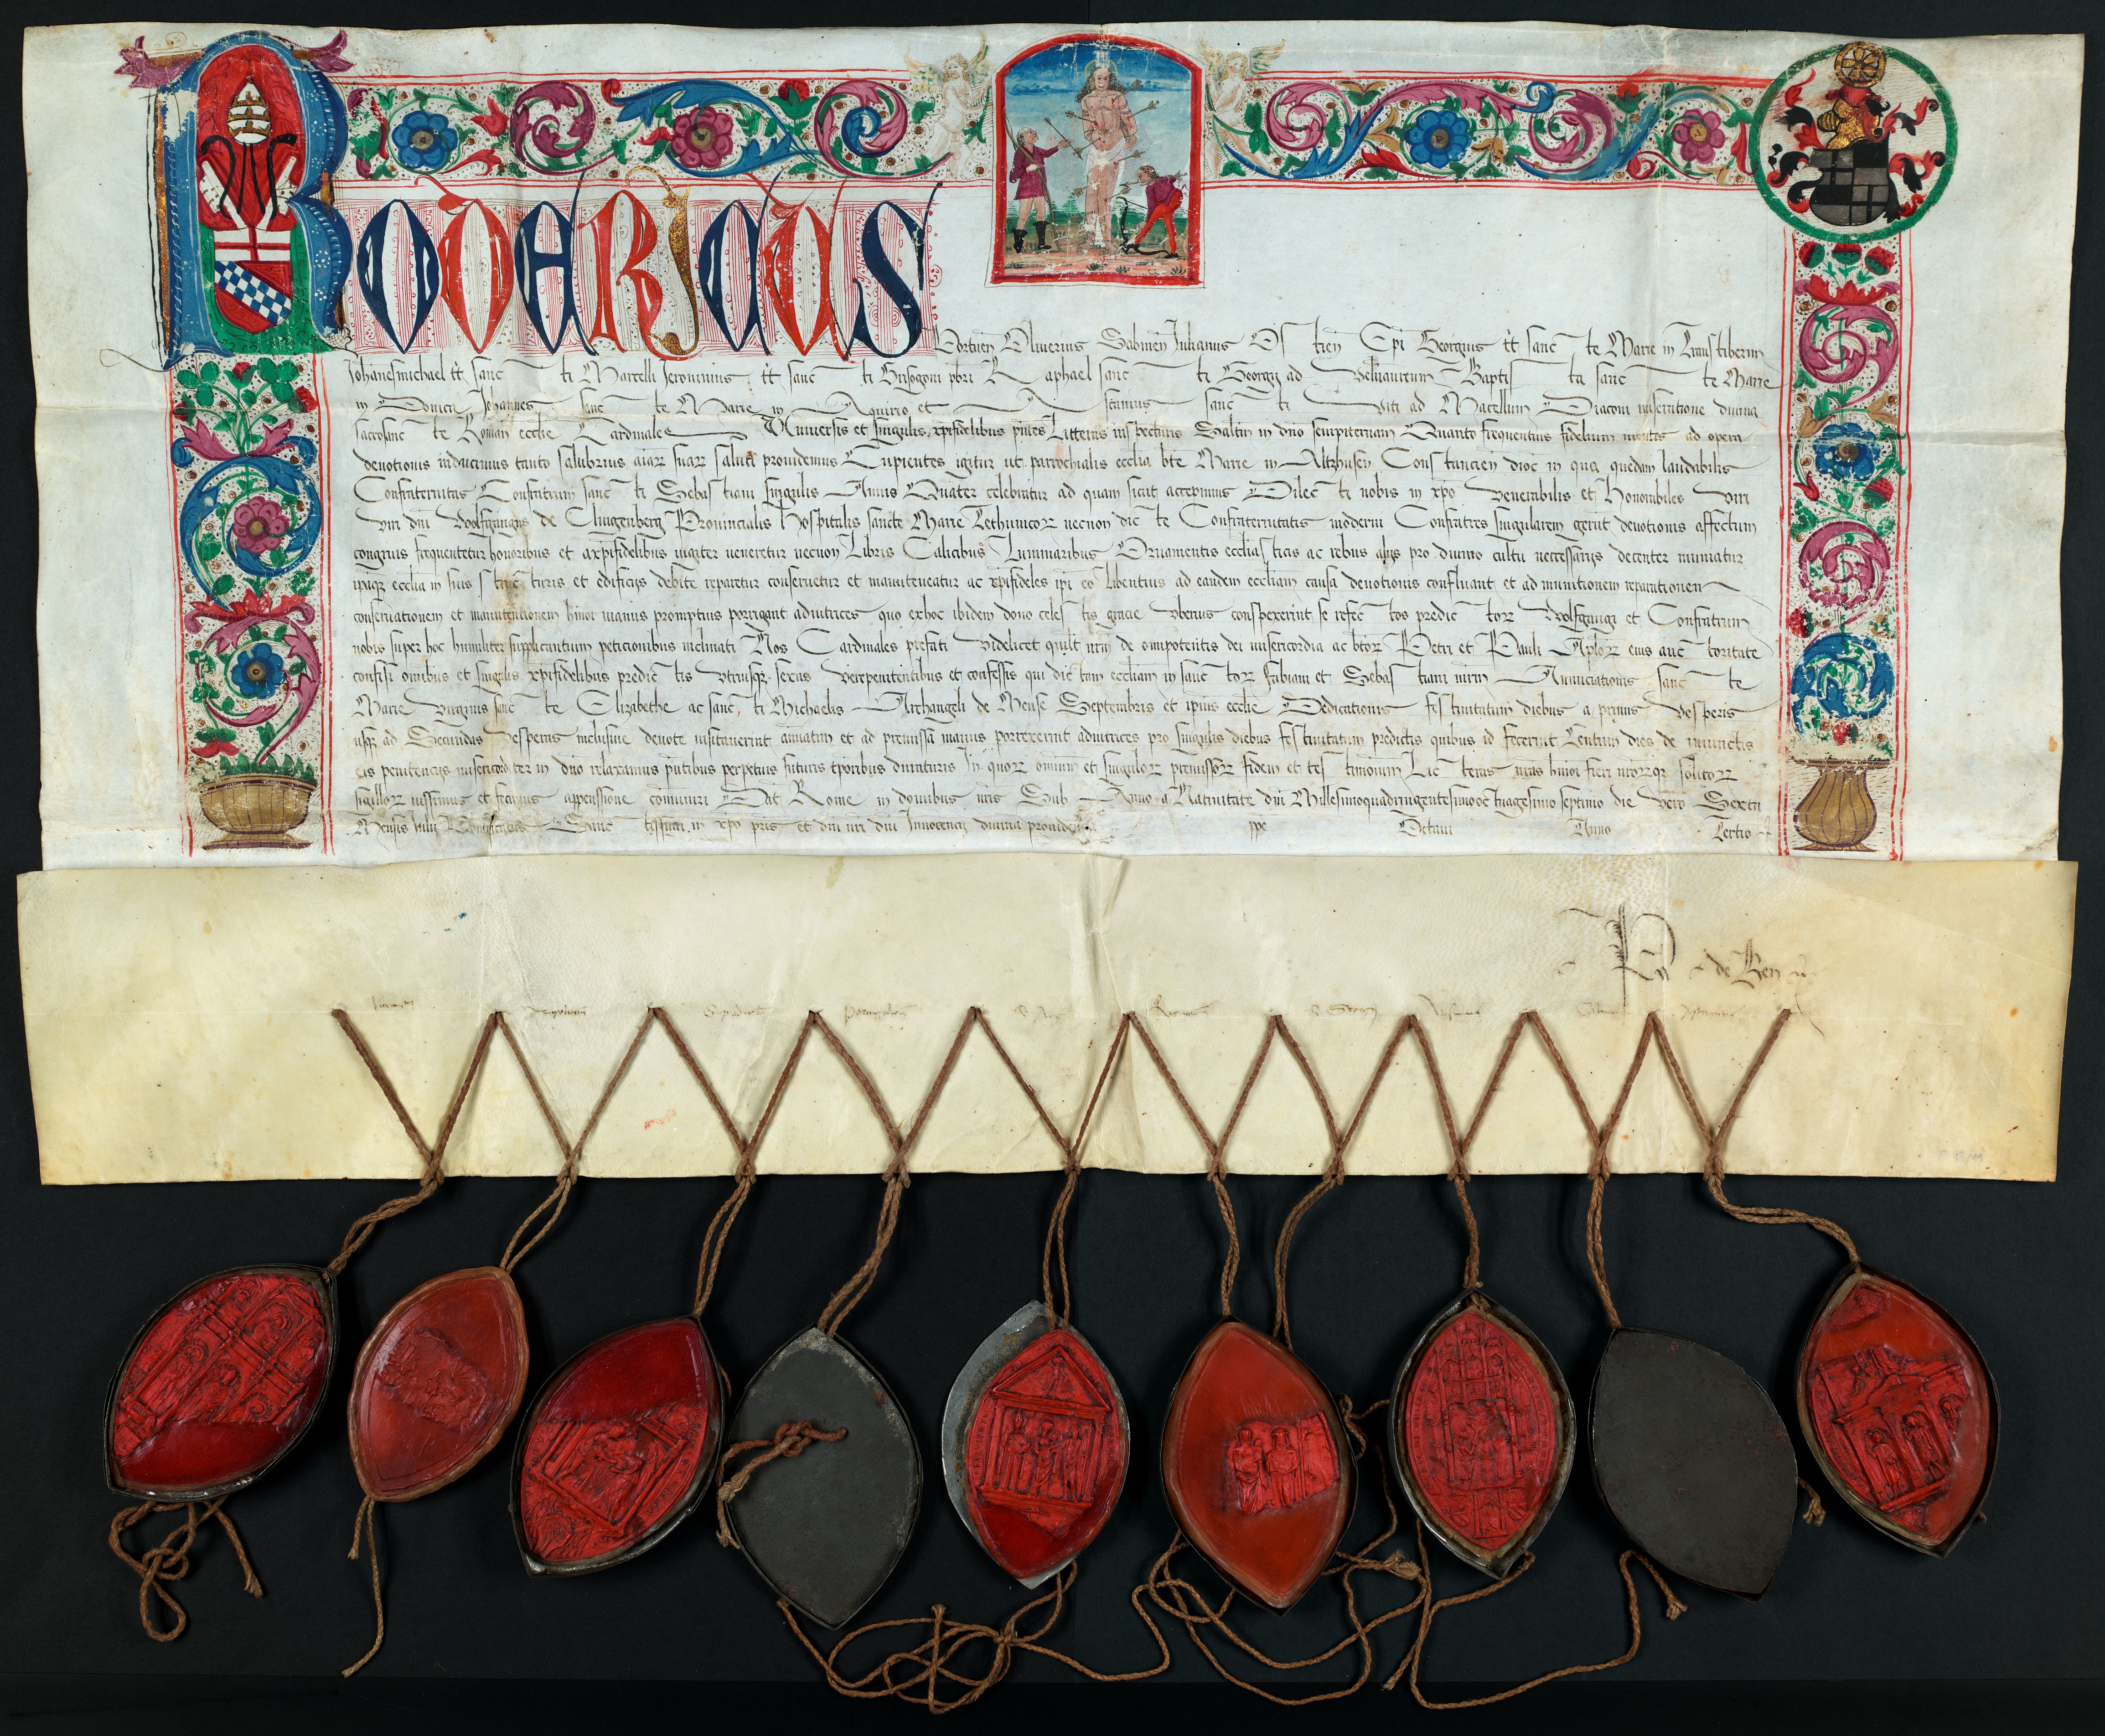 RODERICUS
Portuen Oliuerius Sabinen Julianus Ostien Epi Georgius tt sancte Marie in Transtiberim
Johanesmichael tt sancti Marcelli Jeronimus tt sancti Grisogoni pbri Raphael sancti Georgij ad Velumaureum Baptista sancte Marie
in Dominica Johannes sancte Marie in Aquirio et Ascanius sancti Viti ad Macellum Diaconi miseratione diuina
sacrosancte Roman ecclie Cardinales Vniuersis et singulis xpifidelibus pntes Litteras inspecturis Saltm in dno sempiternam Quanto frequentius fidelium mentes ad opera
deuotionis inducimus tanto salubrius aiarz suarz saluti prouidemus Cupientes igitur ut parrochialis ecclia bte Marie in Altzhusen Constancien dioc in qua quedam laudabilis
Confraternitas Confratrum sancti Sebastiani singulis Annis Quater celebratur ad quam sicut accepimus Dilecti nobis in xpo venerabilis et Honorabiles viri
viri dni Wolfgangus de Clingenberg Prouincialis Hospitalis sancte Marie Tethunicorz necnon dicte Confraternitatis moderni Confratres singularem gerunt deuotionis affectum
congruis frequentetur honoribus et axpifidelibus iugiter ueneretur necnon Libris Calicibus Luminaribus Ornamentis ecclesiasticis ac rebus alijs pro diuino cultu necessarijs decenter muniatur
ipaqz ecclia in suis structuris et edificijs debite reparetur conseruetur et manuteneatur ac xpifideles ipi eo Libentius ad eandem eccliam causa deuotionis confluant et ad munitionem reparationem
conseruationem et manutentionem hmoi manus promptius porrigant adiutrices quo exhoc ibidem dono celestis gracie vberius conspexerint se refectos predictorz Wolfgangi et Confratrum
nobis super hoc humiliter supplicantum peticionibus inclinati Nos Cardinales prefati videlicet quilt nrm de omipotentis dei misericordia ac btorz Petri et Pauli Aplorz eius auctoritate
confisi omibus et singulis xpifidelibus predictis vtriusqz sexus verepenitentibus et confessis qui dictam eccliam in sanctorz Fabiani et Sebastiani mrm Anunciationis sancte
Marie virginis sancte Elizabethe ac sancti Michaelis Archangeli de Mense Septembris et ipius ecclie Dedicationis festiuitatum diebus a primis vesperis
usqz ad Secundas vesperas inclusiue deuote uisitauerint annatim et ad premissa manus porrexerint adiutrices pro singulis diebus festiuitatum predictis quibus id fecerint Centum dies de iniunctis
eis penitencijs misericorditer in dno relaxamus pntibus perpetuis futuris tporibus duraturis In quorz omium et singulorz premissorz fidem et testimonium Litteras nras hmoi fieri nrorzqz solitorz
sigillorz iussimus et fecimus appensione comuniri Dat Rome in domibus nris Sub Anno a Natiuitate dni Millesimoquadringentesimooctuagesimo septimo die vero Sexta
Mensis Iulij Pontificatus Sanctissimi in xpo pris et dni nri dni Innocencij diuina prouidencia ppe Octaui Anno Tercio